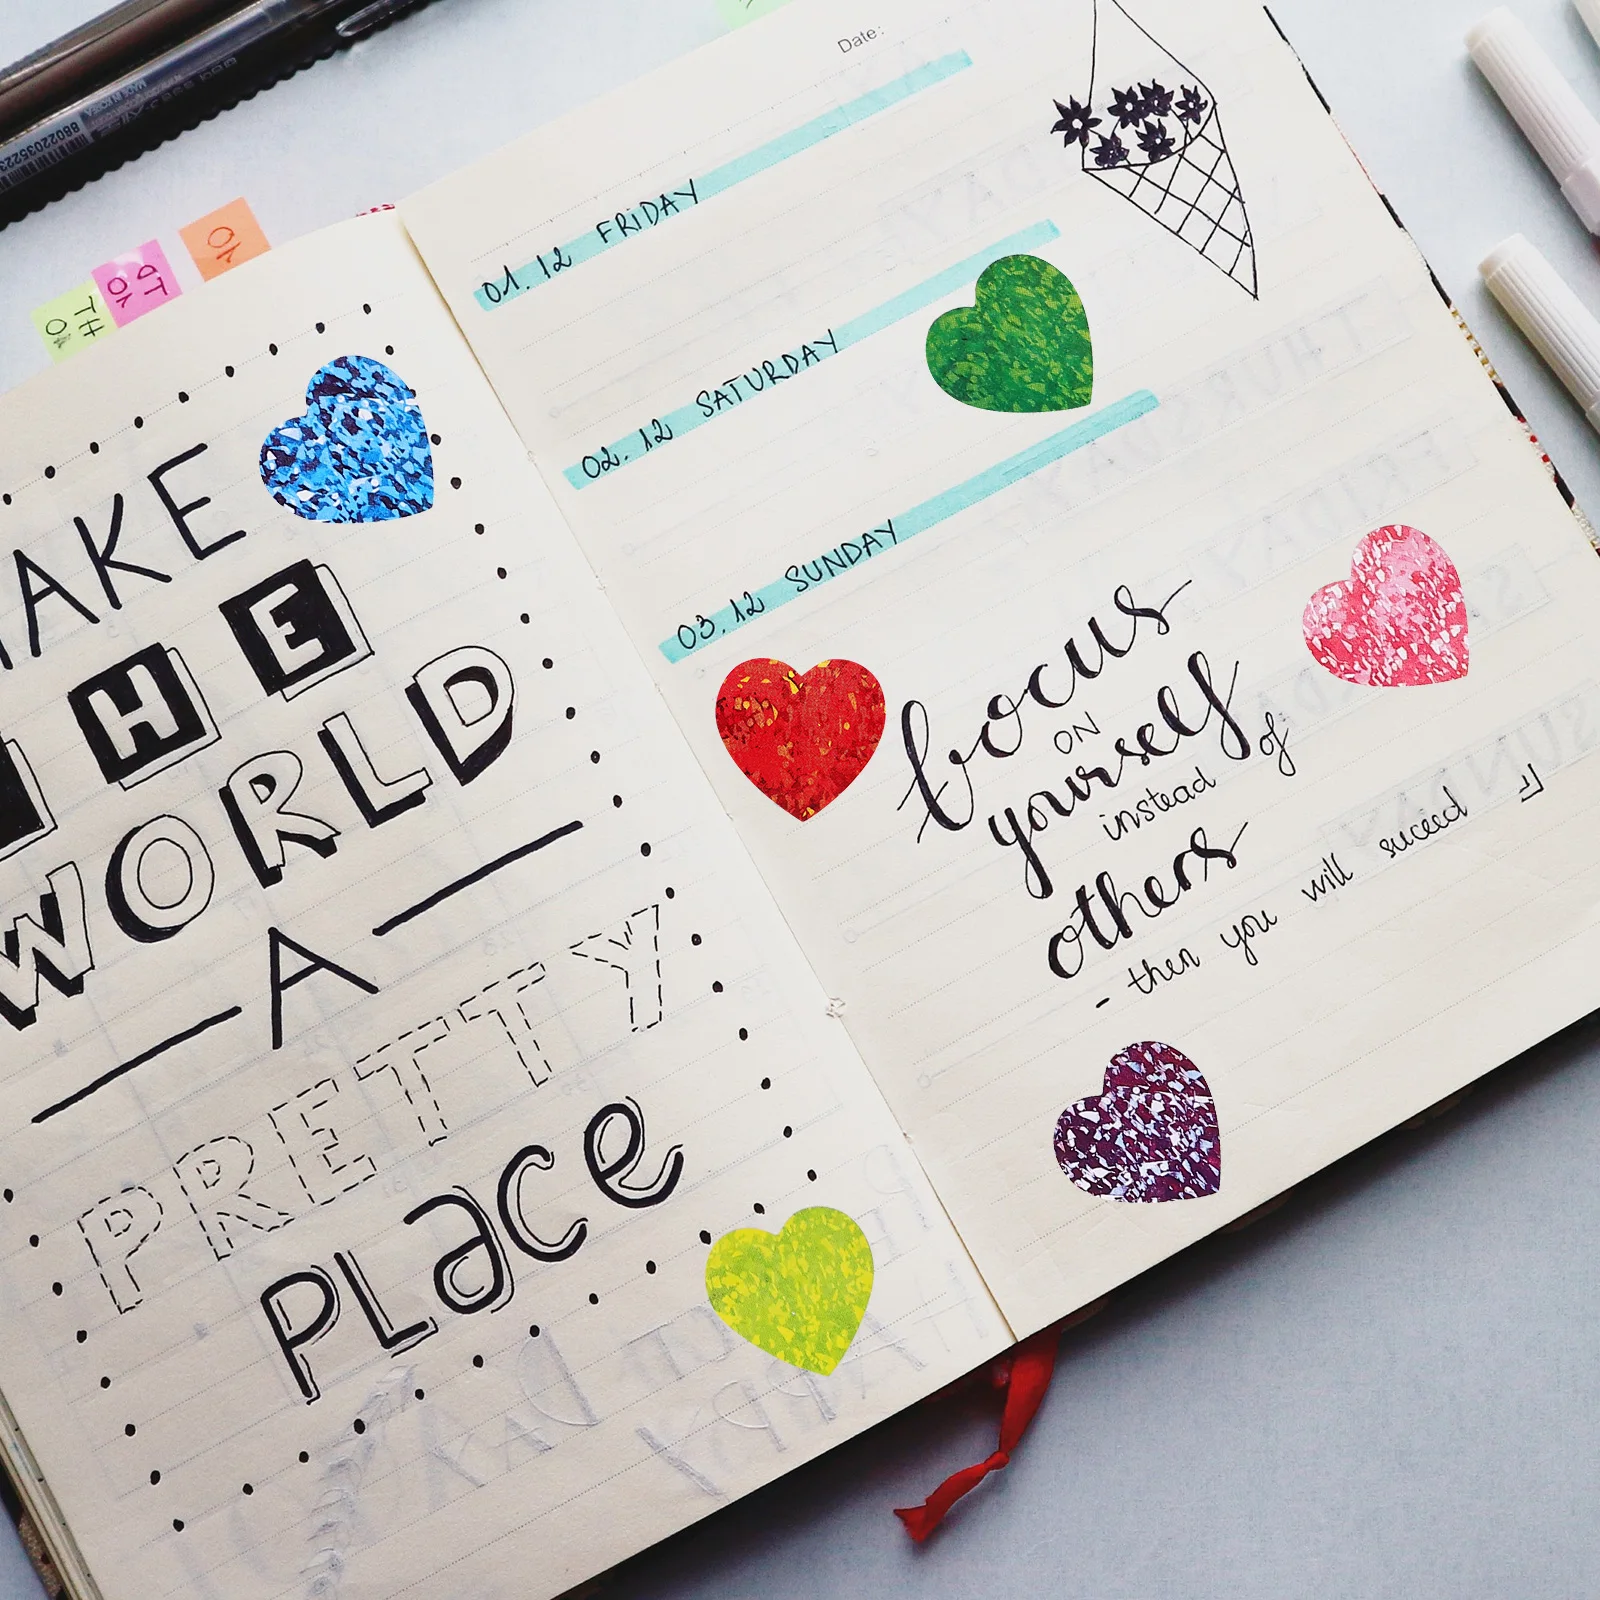 AKE
THE
WORLD
A
PRETTY
PLace
Date:
01. 12 FRIDAY
02. 12 SATURDAY
03. 12 SUNDAY
focus
ON
yourself
instead of
others
- then you will suceed
MADE IN KOREA